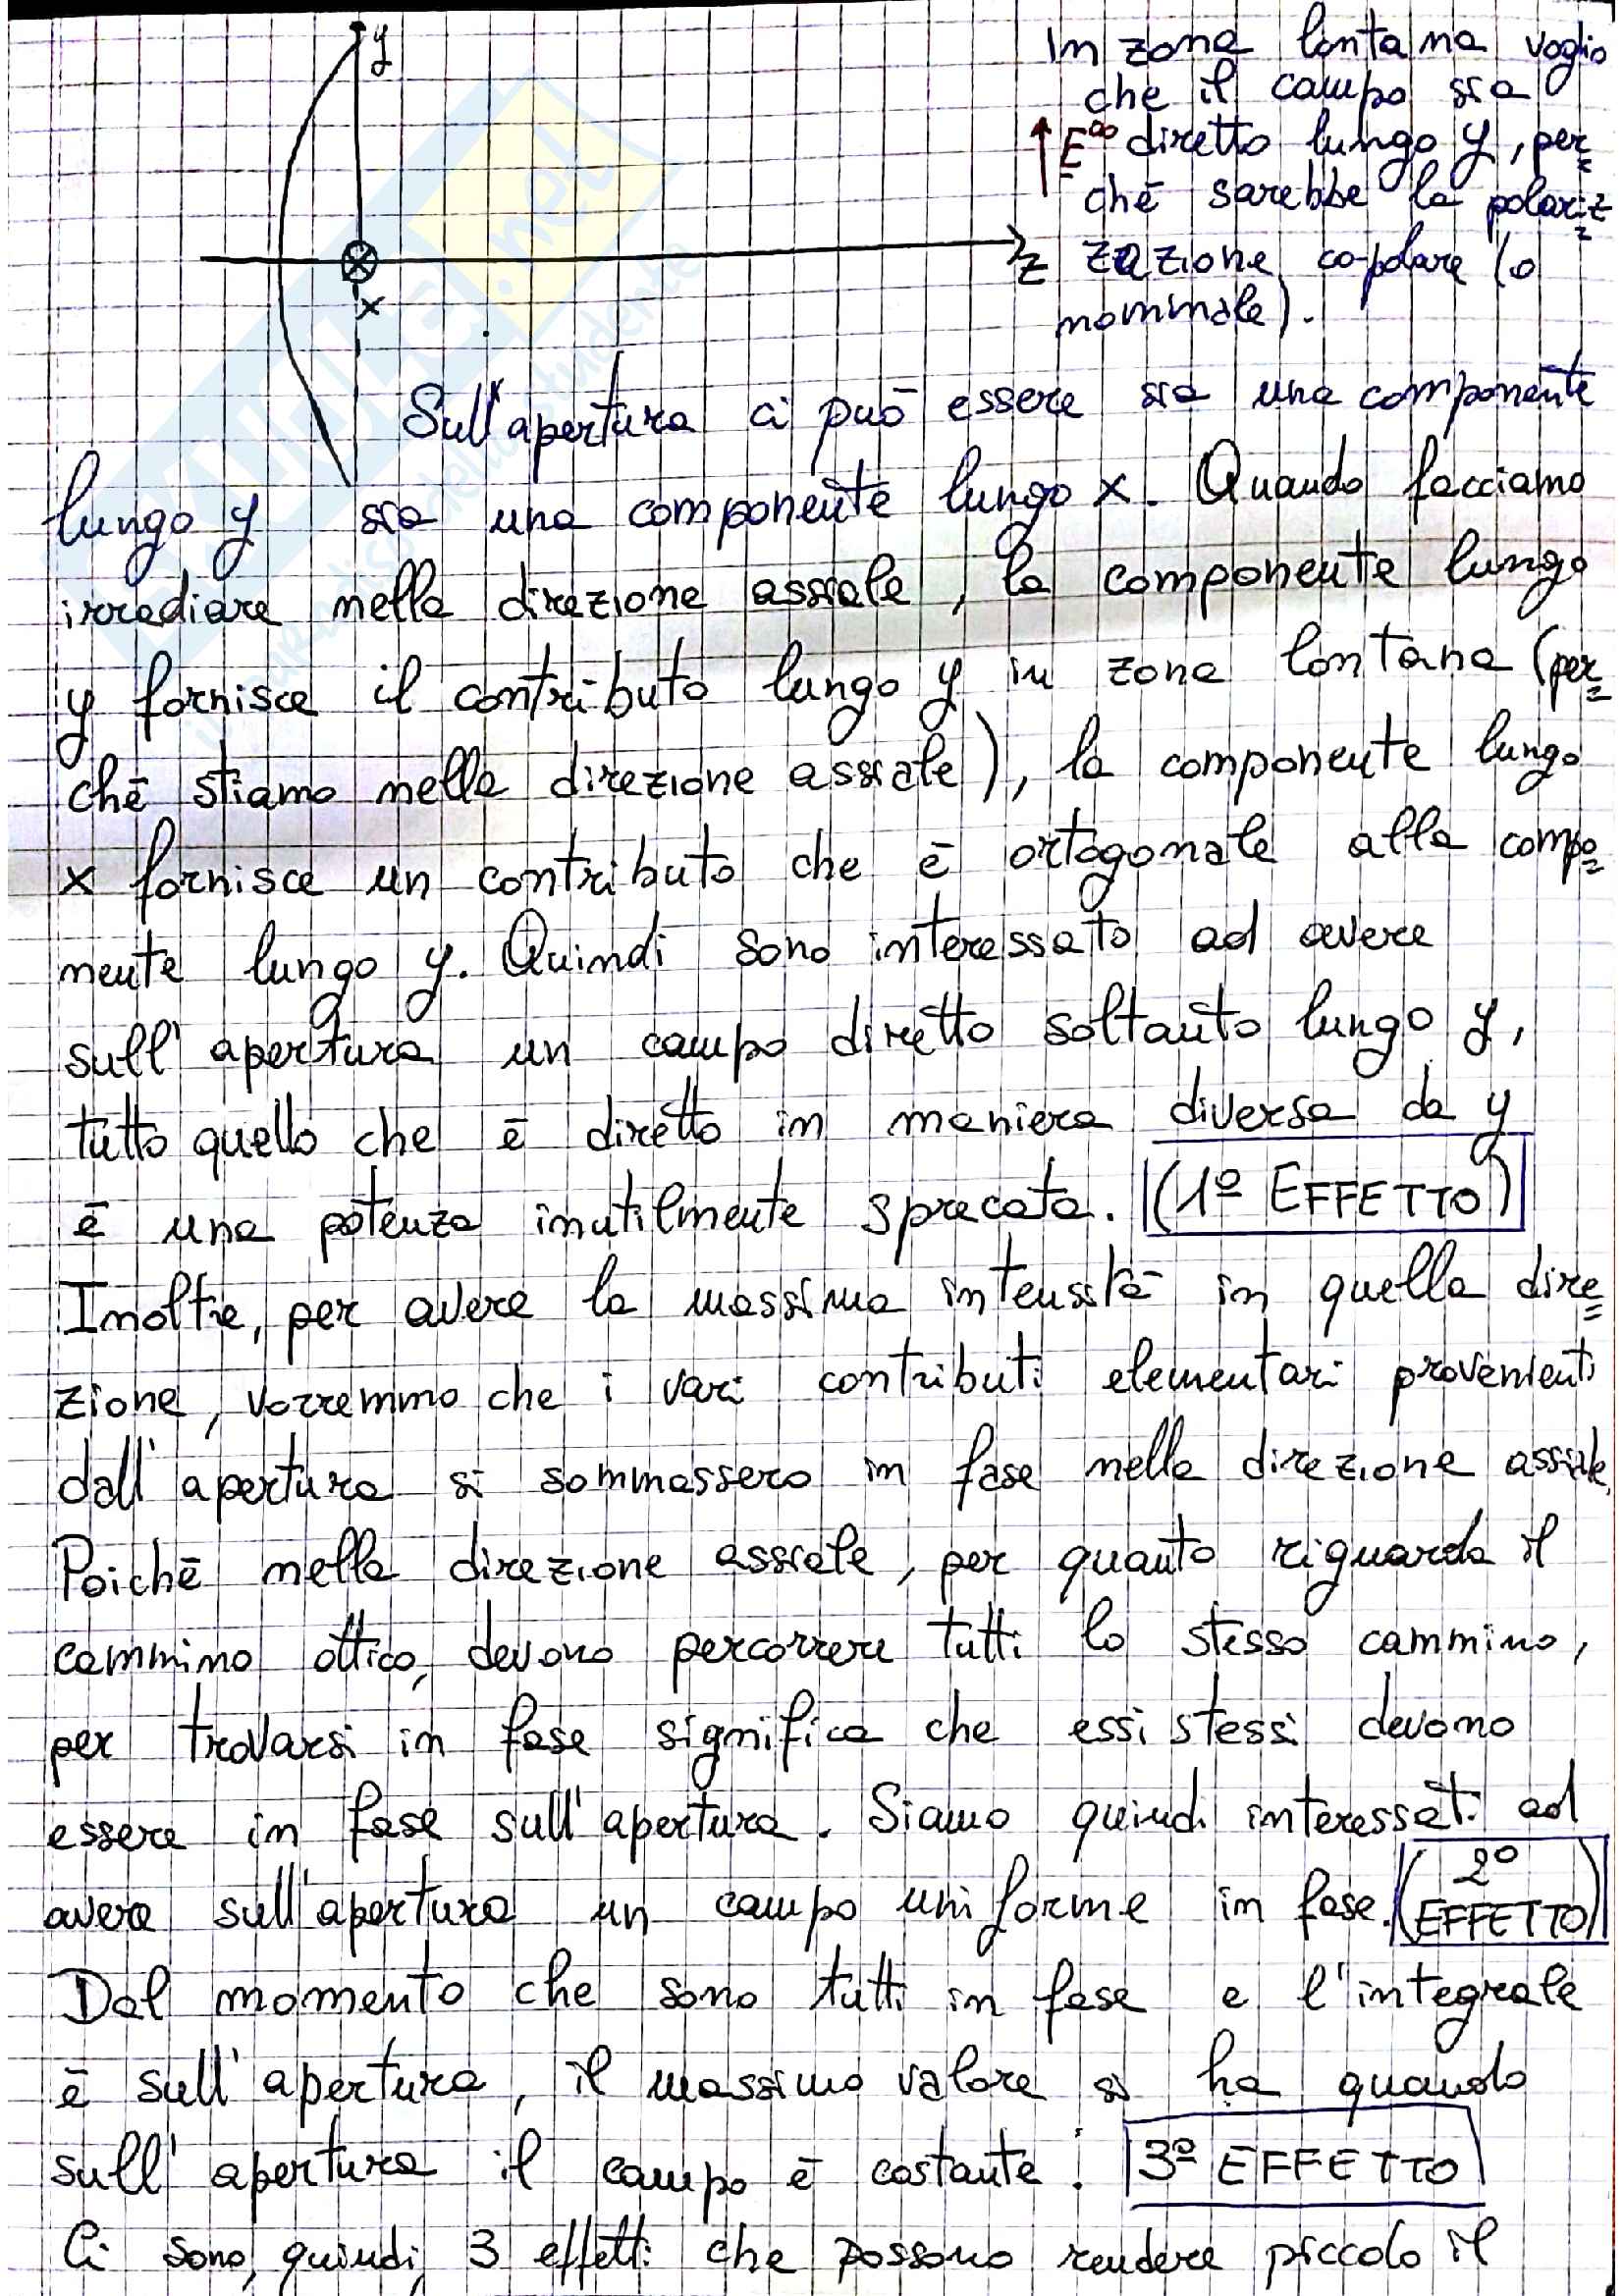 y
In zona lontana voglio
che il campo sia
E∞ diretto lungo y, per=
chè sarebbe la polariz=
z
zazione co-polare (o
x
nominale).
Sull'apertura ci può essere sia una componente
lungo y sia una componente lungo x. Quando facciamo
irradiare nella direzione assiale, la componente lungo
y fornisce il contributo lungo y in zona lontana (per=
chè stiamo nella direzione assiale), la componente lungo
x fornisce un contributo che è ortogonale alla compo=
nente lungo y. Quindi sono interessato ad avere
sull'apertura un campo diretto soltanto lungo y,
tutto quello che è diretto in maniera diversa da y
è una potenza inutilmente sprecata. (1º EFFETTO)
Inoltre, per avere la massima intensità in quella dire=
zione, vorremmo che i vari contributi elementari provenienti
dall'apertura si sommassero in fase nella direzione assiale.
Poichè nella direzione assiale, per quanto riguarda il
cammino ottico, devono percorrere tutti lo stesso cammino,
per trovarsi in fase significa che essi stessi devono
essere in fase sull'apertura. Siamo quindi interessati ad
avere sull'apertura un campo uniforme in fase. (2º EFFETTO)
Dal momento che sono tutti in fase e l'integrale
è sull'apertura, il massimo valore si ha quando
sull'apertura il campo è costante. 3º EFFETTO
Ci sono, quindi, 3 effetti che possono rendere piccolo il